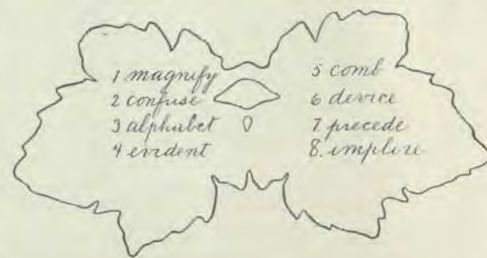 1 magnify
2 confuse
3 alphabet
4 evident
5 comb
6 device
7 precede
8.